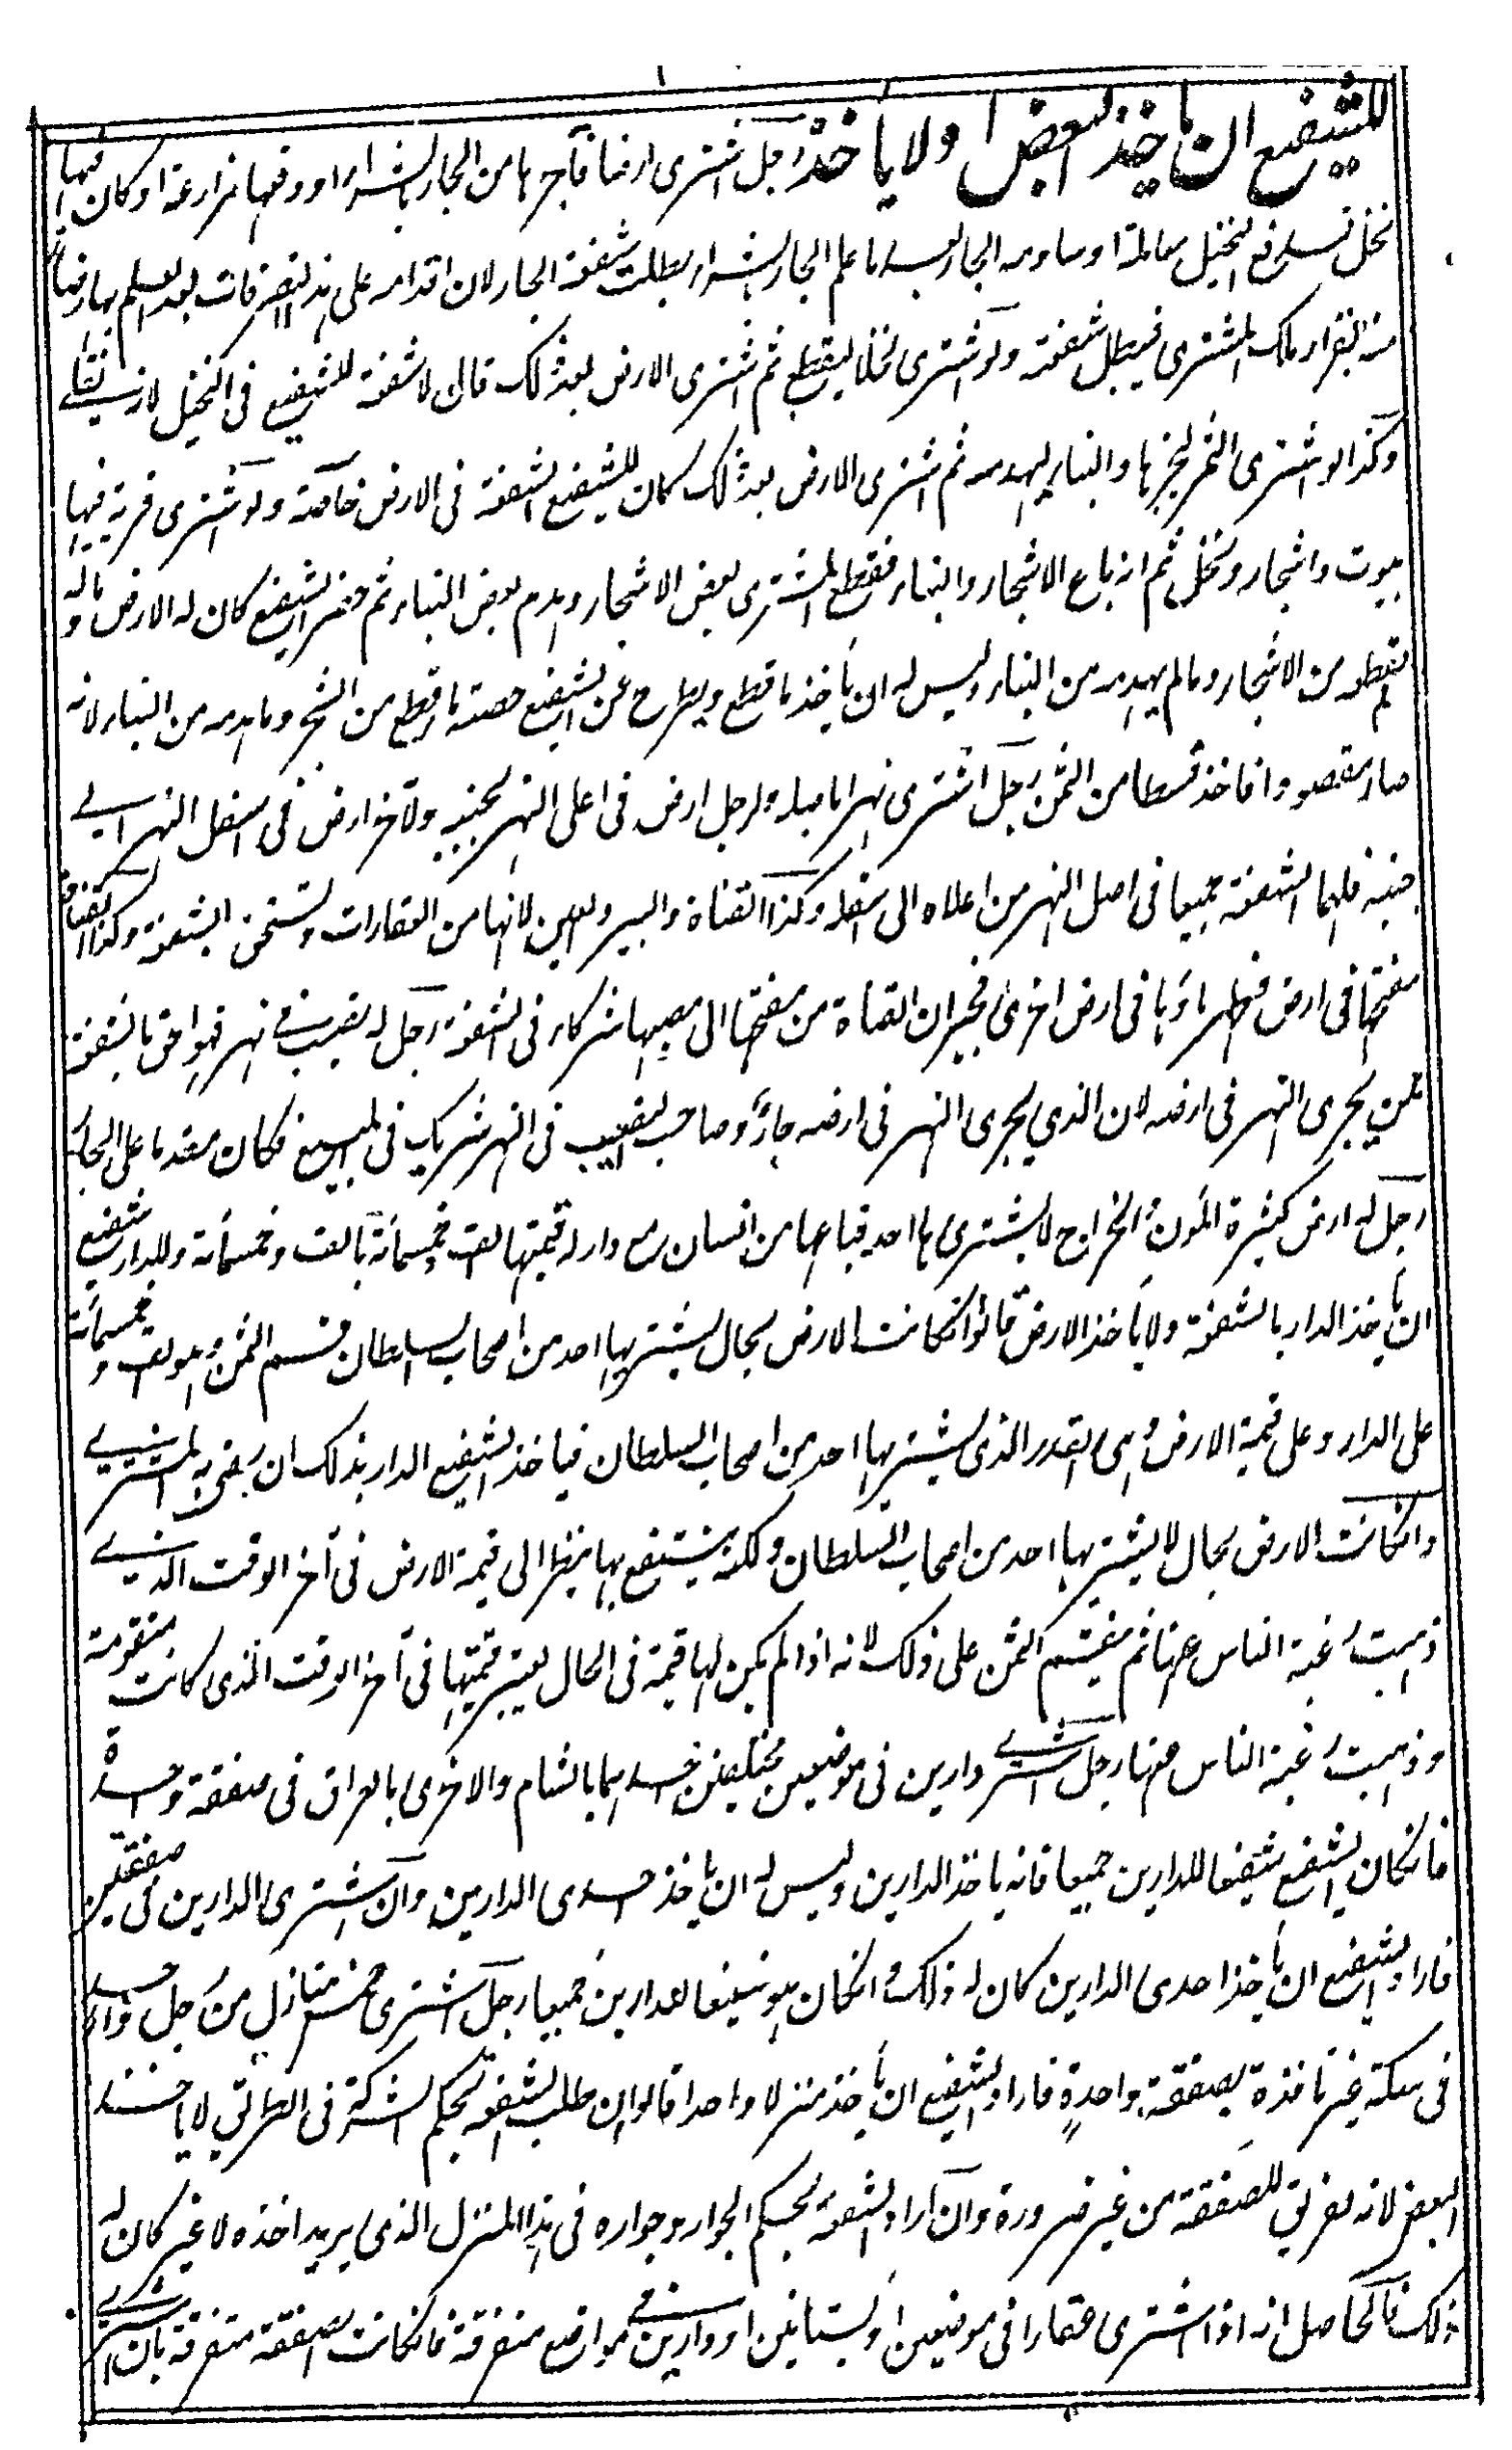 للشفيع ان ياخذ البعض او لا ياخذ رجل اشترى ارضا فآجرها من الجار بالشراء او دفعها مزارعة او كان فيها
نخل فدفع النخيل معاملة او ساومه الجار بعد ما علم الجار بالشراء بطلت شفعة الجار لان اقدامه على هذه التصرفات بعد العلم بها رضا
منه بتقرار ملك المشترى فيبطل شفعته ولو اشترى نخلا ليقطع ثم اشترى الارض بعد ذلك قال لا شفعة للشفيع فى النخيل لانه نقلى
وكذا لو اشترى الثمر ليجزها والبناء ليهدمه ثم اشترى الارض بعد ذلك كان للشفيع الشفعة فى الارض خاصة ولو اشترى قرية فيها
بيوت واشجار ونخل ثم انه باع الاشجار والبناء فقطع المشترى بعض الاشجار وهدم بعض البناء ثم حضر الشفيع كان له الارض وما
لم يقطع من الاشجار وما لم يهدمه من البناء وليس له ان ياخذ ما قطع ويطرح عن الشفيع حصته ما قطع من الشجر وما هدمه من البناء لانه
صار مقصودا فاخذ قسطا من الثمن رجل اشترى نهرا باصله ولرجل ارض فى اعلى النهر بجنبه ولآخر ارض فى اسفل النهر الى
جنبه فلهما الشفعة جميعا فى اصل النهر من اعلاه الى اسفله وكذا القناة والبير والعين لانها من العقارات وتستحق بالشفعة وكذا القناة
مفتحها فى ارض فظهر ماؤها فى ارض اخرى فجيران القناة من مفتحها الى مصبها شركاء فى الشفعة رجل له نصيب فى نهر فهو احق بالشفعة
ممن يجرى النهر فى ارضه لان الذي يجرى النهر فى ارضه جار وصاحب النصيب فى النهر شريك فى المبيع فكان مقدما على الجار
رجل له ارض كثيرة المؤن والخراج لا يشتريها احد فباعها من انسان مع دار له قيمتها الف وخمسمائة بالف وخمسمائة وللدار شفيع
ان ياخذ الدار بالشفعة ولا ياخذ الارض قالوا انكانت الارض بحال يشتريها احد من اصحاب السلطان قسم الثمن وهو الف وخمسمائة
على الدار وعلى قيمة الارض وهى القدر الذى يشتريها احد من اصحاب السلطان فياخذ الشفيع الدار بذلك ان رضى به المشترى
وانكانت الارض بحال لا يشتريها احد من اصحاب السلطان ولكنه ينتفع بها ينظر الى قيمة الارض فى آخر الوقت الذى
ذهبت رغبة الناس عنها ثم يقسم الثمن على ذلك لانه اذا لم يكن لها قيمة فى الحال يعتبر قيمتها فى آخر الوقت الذى كانت متقومة
وذهبت رغبة الناس عنها رجل اشترى دارين فى موضعين مختلفين احدهما بالشام والاخرى بالعراق فى صفقة واحدة
فانكان الشفيع شفيعا للدارين جميعا فانه ياخذ الدارين وليس له ان ياخذ احدى الدارين وان اشترى الدارين فى صفقتين
فاراد الشفيع ان ياخذ احدى الدارين كان له ذلك وانكان هو شفيعا للدارين جميعا رجل اشترى خمس منازل من رجل واحد
فى سكة غير نافذة بصفقة واحدة فاراد الشفيع ان ياخذ منزلا واحدا قالوا ان طلب الشفعة بحكم الشركة فى الطريق لا ياخذ
البعض لانه تفريق للصفقة من غير ضرورة وان اراد الشفعة بحكم الجوار وجواره فى هذا المنزل الذى يريد اخذه لا غير كان له
ذلك فالحاصل انه اذا اشترى عقارا فى موضعين او بستانين او دارين فى مواضع متفرقة فانكانت الصفقة متفرقة بان اشترى